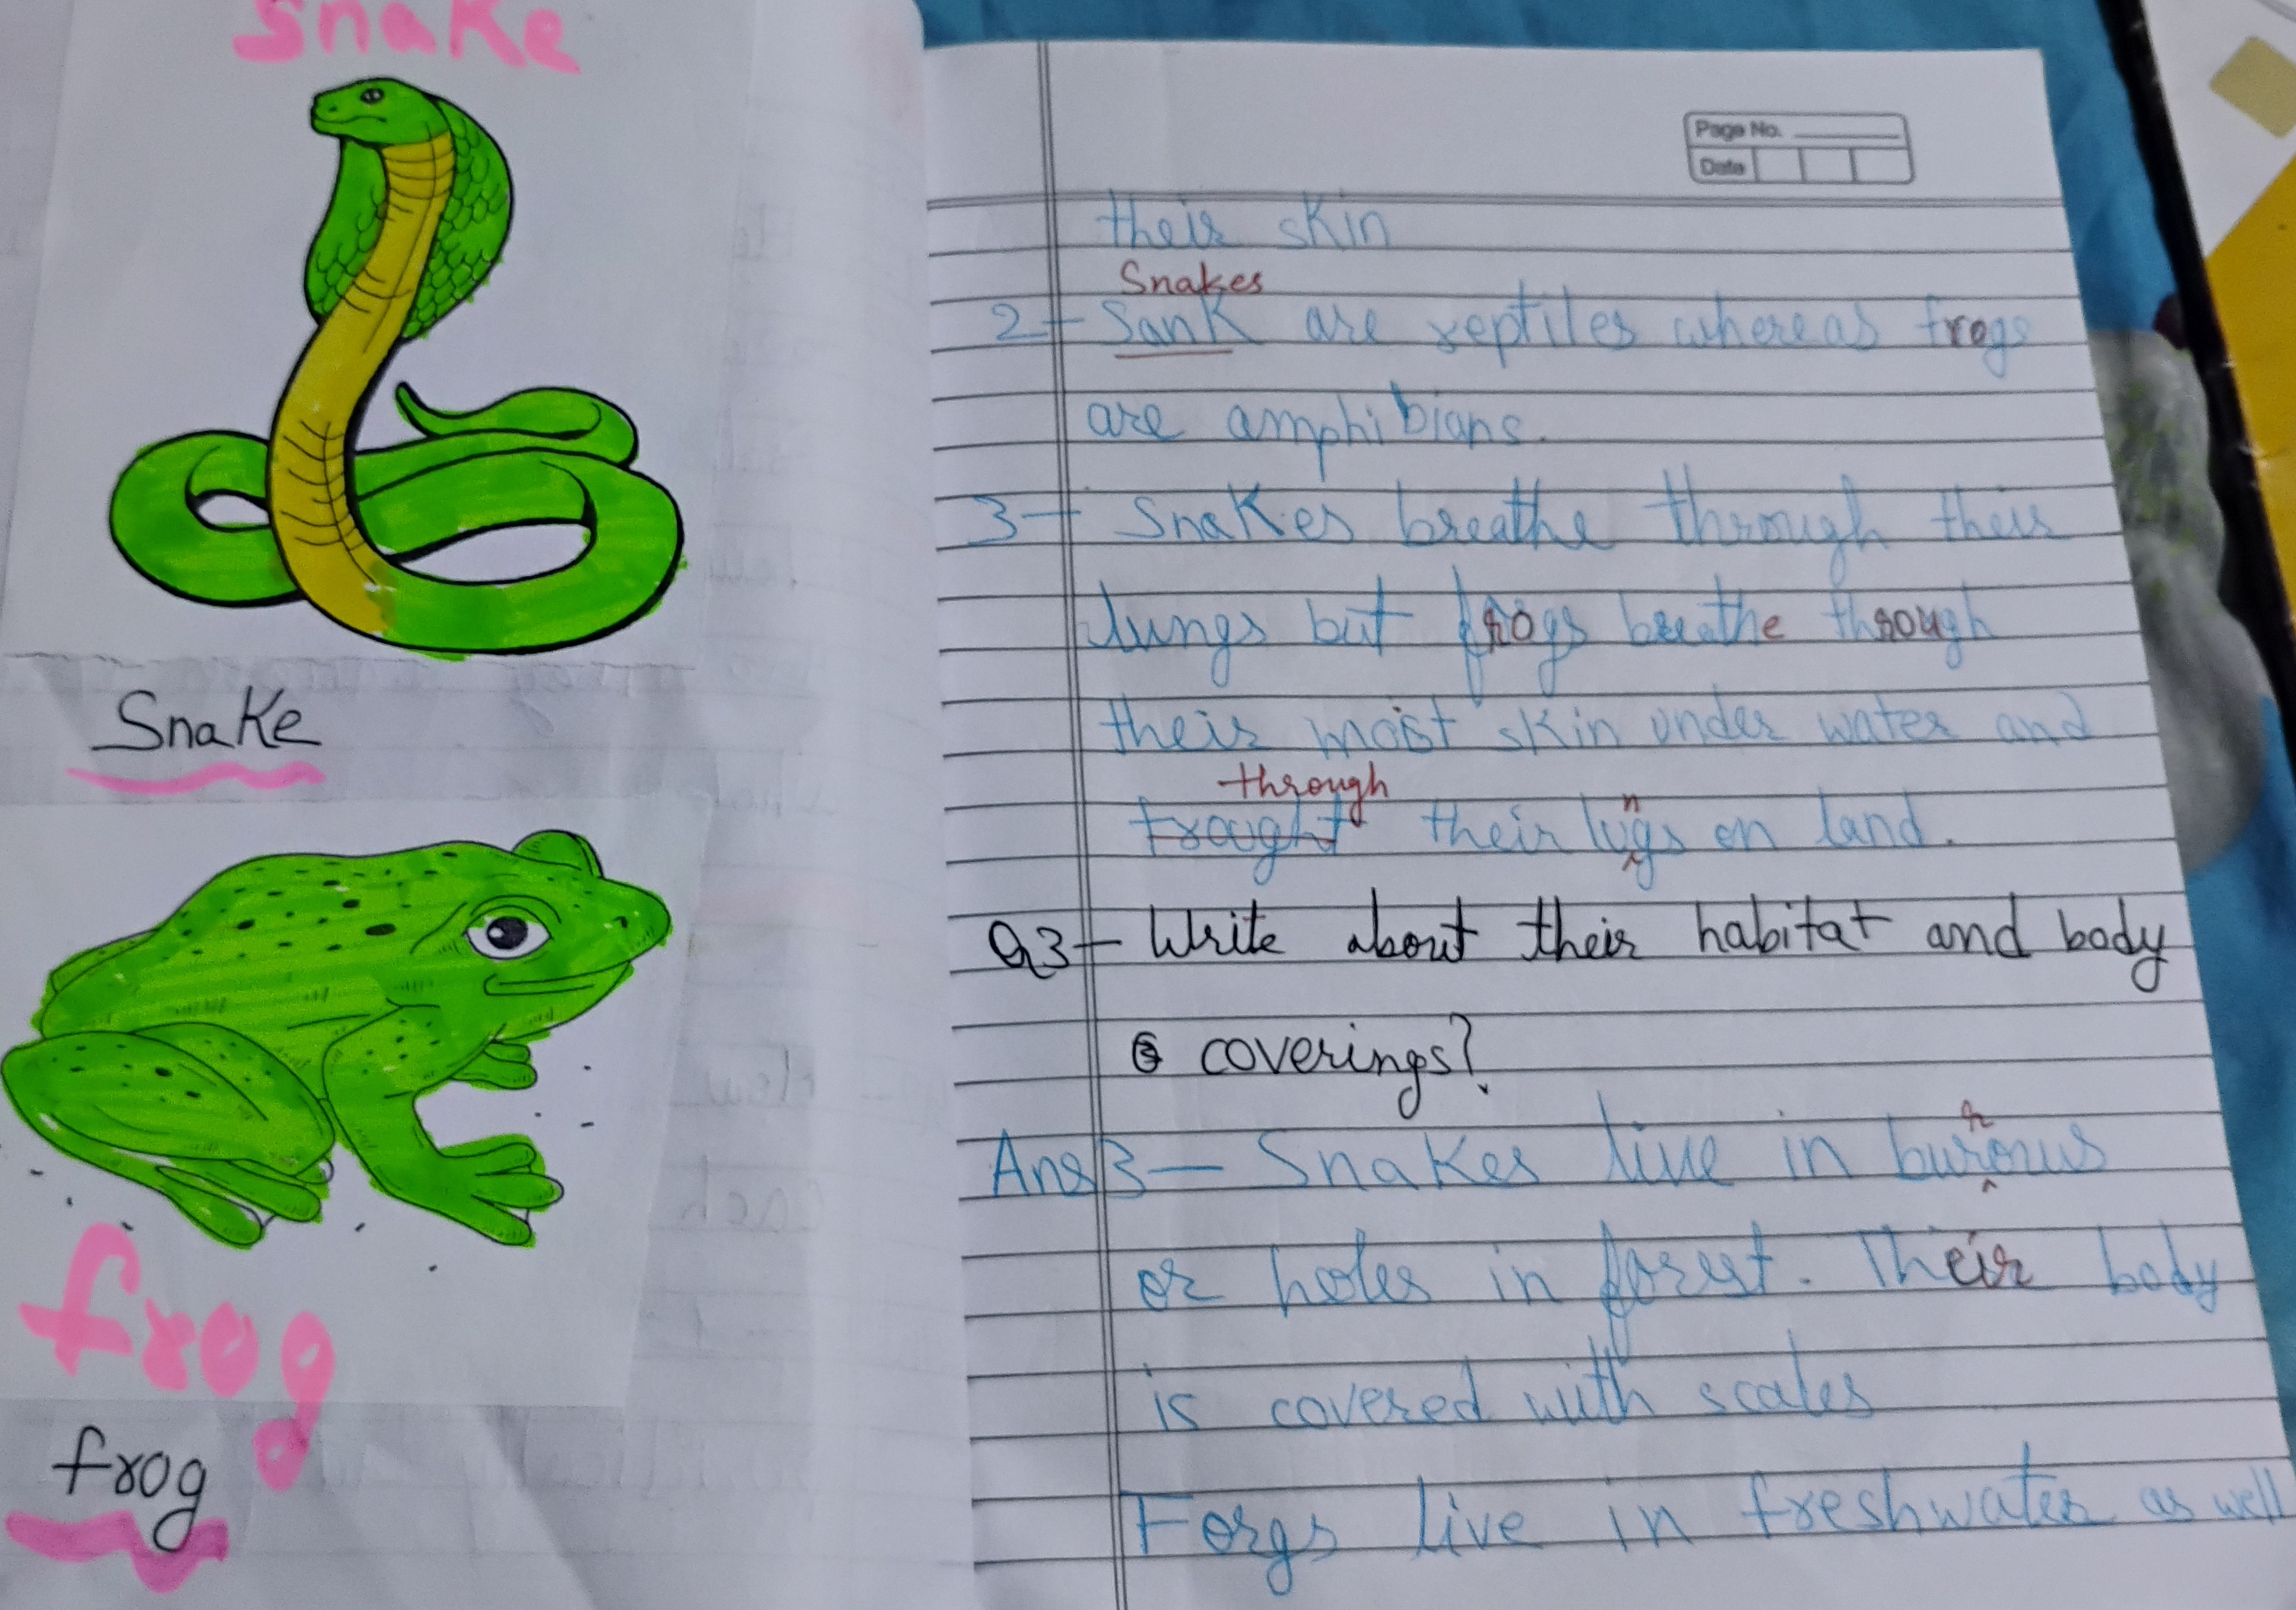 Snake
Snake
frog
frog
Page No.
Date
their skin
Snakes
2- Sank are reptiles whereas frogs
are amphibians.
3- Snakes breathe through their
lungs but frogs breathe through
their moist skin under water and
through
trought their lugs on land.
n
Q3- Write about their habitat and body
coverings?
r
Ans 3- Snakes live in burous
or holes in forest. Their body
is covered with scales
Forgs live in freshwater as well